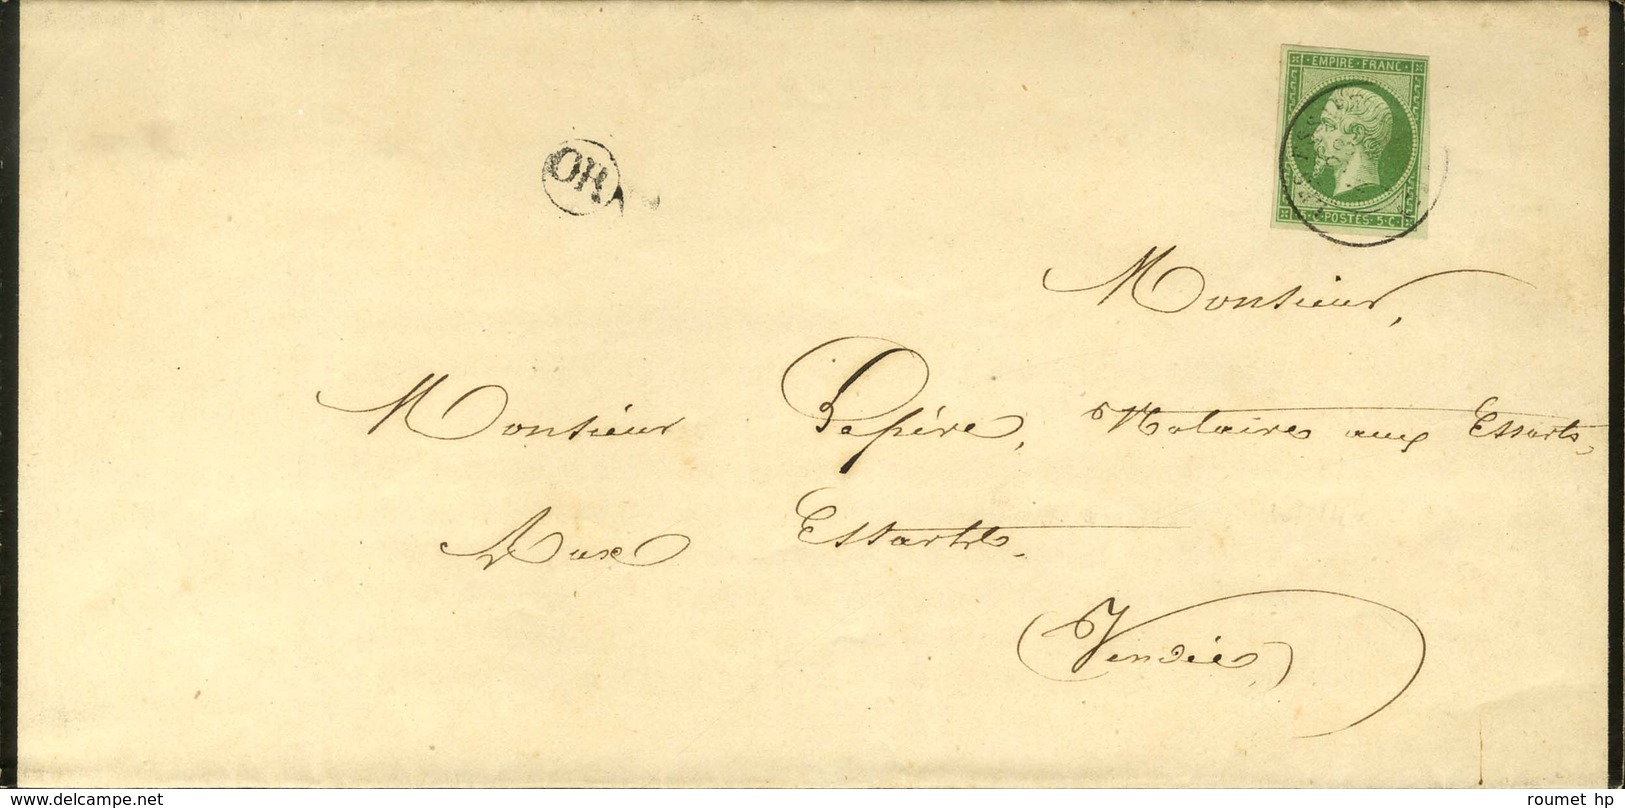 EMPIRE · FRANC ·
5 · C · POSTES · 5 · C ·
OR
Monsieur,
Monsieur Pepère, Notaire aux Essarts,
Aux Essarts.
(Vendée)
www.delcampe.net
roumet hp